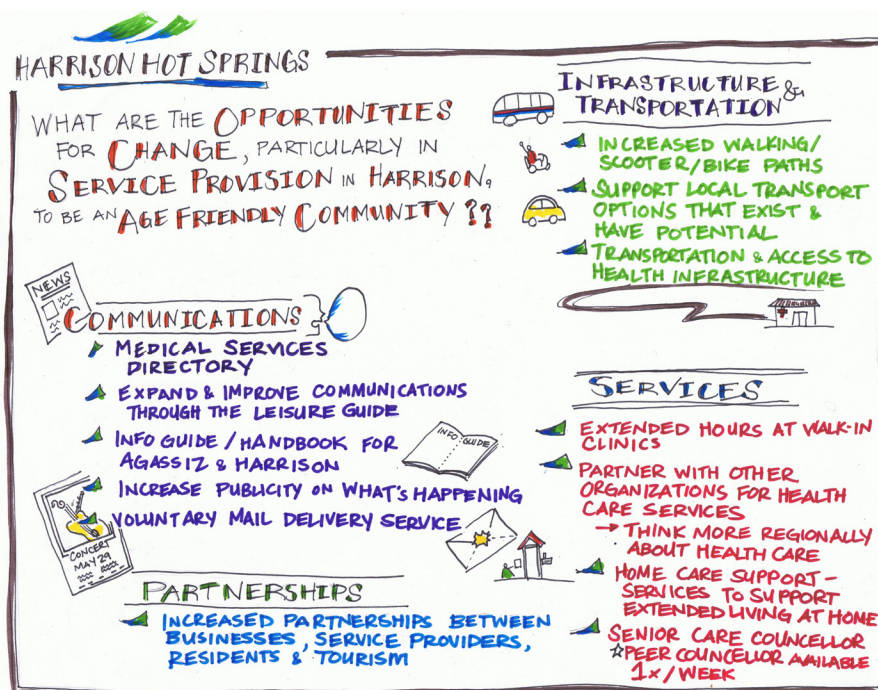 HARRISON HOT SPRINGS
WHAT ARE THE OPPORTUNITIES
FOR CHANGE, PARTICULARLY IN
SERVICE PROVISION IN HARRISON,
TO BE AN AGE FRIENDLY COMMUNITY ??
NEWS
COMMUNICATIONS
MEDICAL SERVICES
DIRECTORY
EXPAND & IMPROVE COMMUNICATIONS
THROUGH THE LEISURE GUIDE
INFO GUIDE / HANDBOOK FOR
AGASSIZ & HARRISON
INCREASE PUBLICITY ON WHAT'S HAPPENING
VOLUNTARY MAIL DELIVERY SERVICE
INFO GUIDE
CONCERT
MAY 29
PARTNERSHIPS
INCREASED PARTNERSHIPS BETWEEN
BUSINESSES, SERVICE PROVIDERS,
RESIDENTS & TOURISM
INFRASTRUCTURE &
TRANSPORTATION
INCREASED WALKING/
SCOOTER/BIKE PATHS
SUPPORT LOCAL TRANSPORT
OPTIONS THAT EXIST &
HAVE POTENTIAL
TRANSPORTATION & ACCESS TO
HEALTH INFRASTRUCTURE
SERVICES
EXTENDED HOURS AT WALK-IN
CLINICS
PARTNER WITH OTHER
ORGANIZATIONS FOR HEALTH
CARE SERVICES
→ THINK MORE REGIONALLY
ABOUT HEALTH CARE
HOME CARE SUPPORT -
SERVICES TO SUPPORT
EXTENDED LIVING AT HOME
SENIOR CARE COUNCELLOR
☆PEER COUNCELLOR AVAILABLE
1x/WEEK